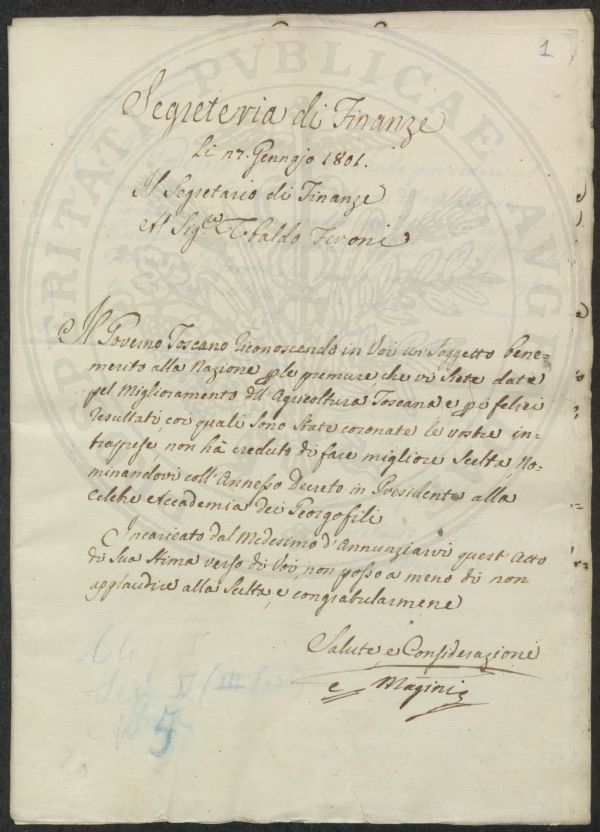 1
Segreteria di Finanze
li 27. Gennajo 1801.
Il Segretario di Finanze
Al Sig.re Ubaldo Feroni
Il Governo Toscano riconoscendo in Voi un Soggetto bene-
merito alla Nazione p le premure, che vi siete date
pel Miglioramento dell'Agricoltura Toscana e p i felici
resultati, coi quali sono state coronate le vostre in-
traprese non hà creduto di fare migliore Scelta, No-
minandovi coll'Annesso Decreto in Presidente alla
Celebe Accademia dei Georgofili
Incaricato dal Medesimo d'Annunziarvi quest'Atto
di Sua Stima verso di Voi, non posso a meno di non
applaudire alla Scelta, e congratularmene
Salute, e Considerazione
Magini
PVBLICAE
AVG
PROSPERITATI
5